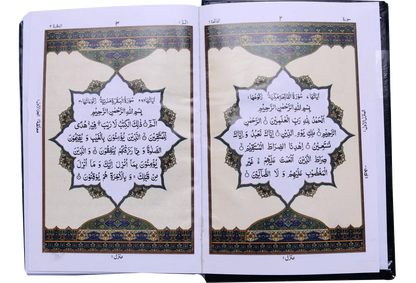 ٢
سُوْرَةُ الْفَاتِحَةِ
بِسْمِ اللّٰهِ الرَّحْمٰنِ الرَّحِيْمِ
اَلْحَمْدُ لِلّٰهِ رَبِّ الْعٰلَمِيْنَ ۝ الرَّحْمٰنِ
الرَّحِيْمِ ۝ مٰلِكِ يَوْمِ الدِّيْنِ ۝ اِيَّاكَ نَعْبُدُ وَ اِيَّاكَ
نَسْتَعِيْنُ ۝ اِهْدِنَا الصِّرَاطَ الْمُسْتَقِيْمَ ۝
صِرَاطَ الَّذِيْنَ اَنْعَمْتَ عَلَيْهِمْ ۝ غَيْرِ
الْمَغْضُوْبِ عَلَيْهِمْ وَ لَا الضَّآلِّيْنَ ۝
منزل ١
٣
سُوْرَةُ الْبَقَرَةِ
بِسْمِ اللّٰهِ الرَّحْمٰنِ الرَّحِيْمِ
الٓمّٓ ۝ ذٰلِكَ الْكِتٰبُ لَا رَيْبَ فِيْهِ هُدًى
لِّلْمُتَّقِيْنَ ۝ الَّذِيْنَ يُؤْمِنُوْنَ بِالْغَيْبِ وَ يُقِيْمُوْنَ
الصَّلٰوةَ وَ مِمَّا رَزَقْنٰهُمْ يُنْفِقُوْنَ ۝ وَ الَّذِيْنَ
يُؤْمِنُوْنَ بِمَا اُنْزِلَ اِلَيْكَ وَ مَا اُنْزِلَ
مِنْ قَبْلِكَ وَ بِالْاٰخِرَةِ هُمْ يُوْقِنُوْنَ ۝
منزل ١